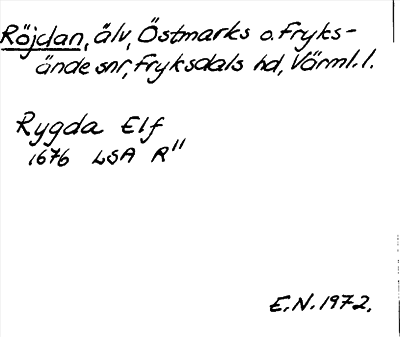 Röjdan, älv, Östmarks o. Fryks-
ände snr, Fryksdals hd, Värml. l.
Rygda Elf
1676 LSA R"
E.N. 1972.